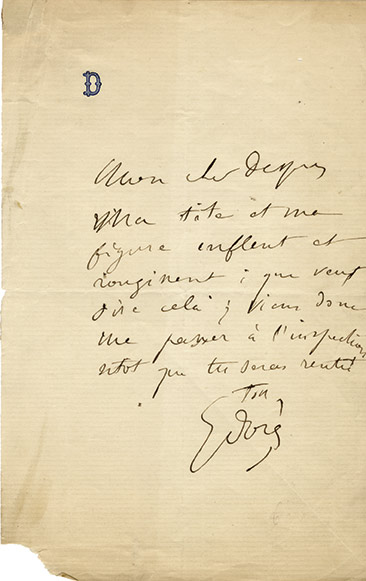 D
Mon cher Despres
Ma tête et ma
figure enflent et
rougissent ; que veut
dire cela ; viens donc
me passer à l'inspection
sitot que tu seras rentré
Ton
G Doré